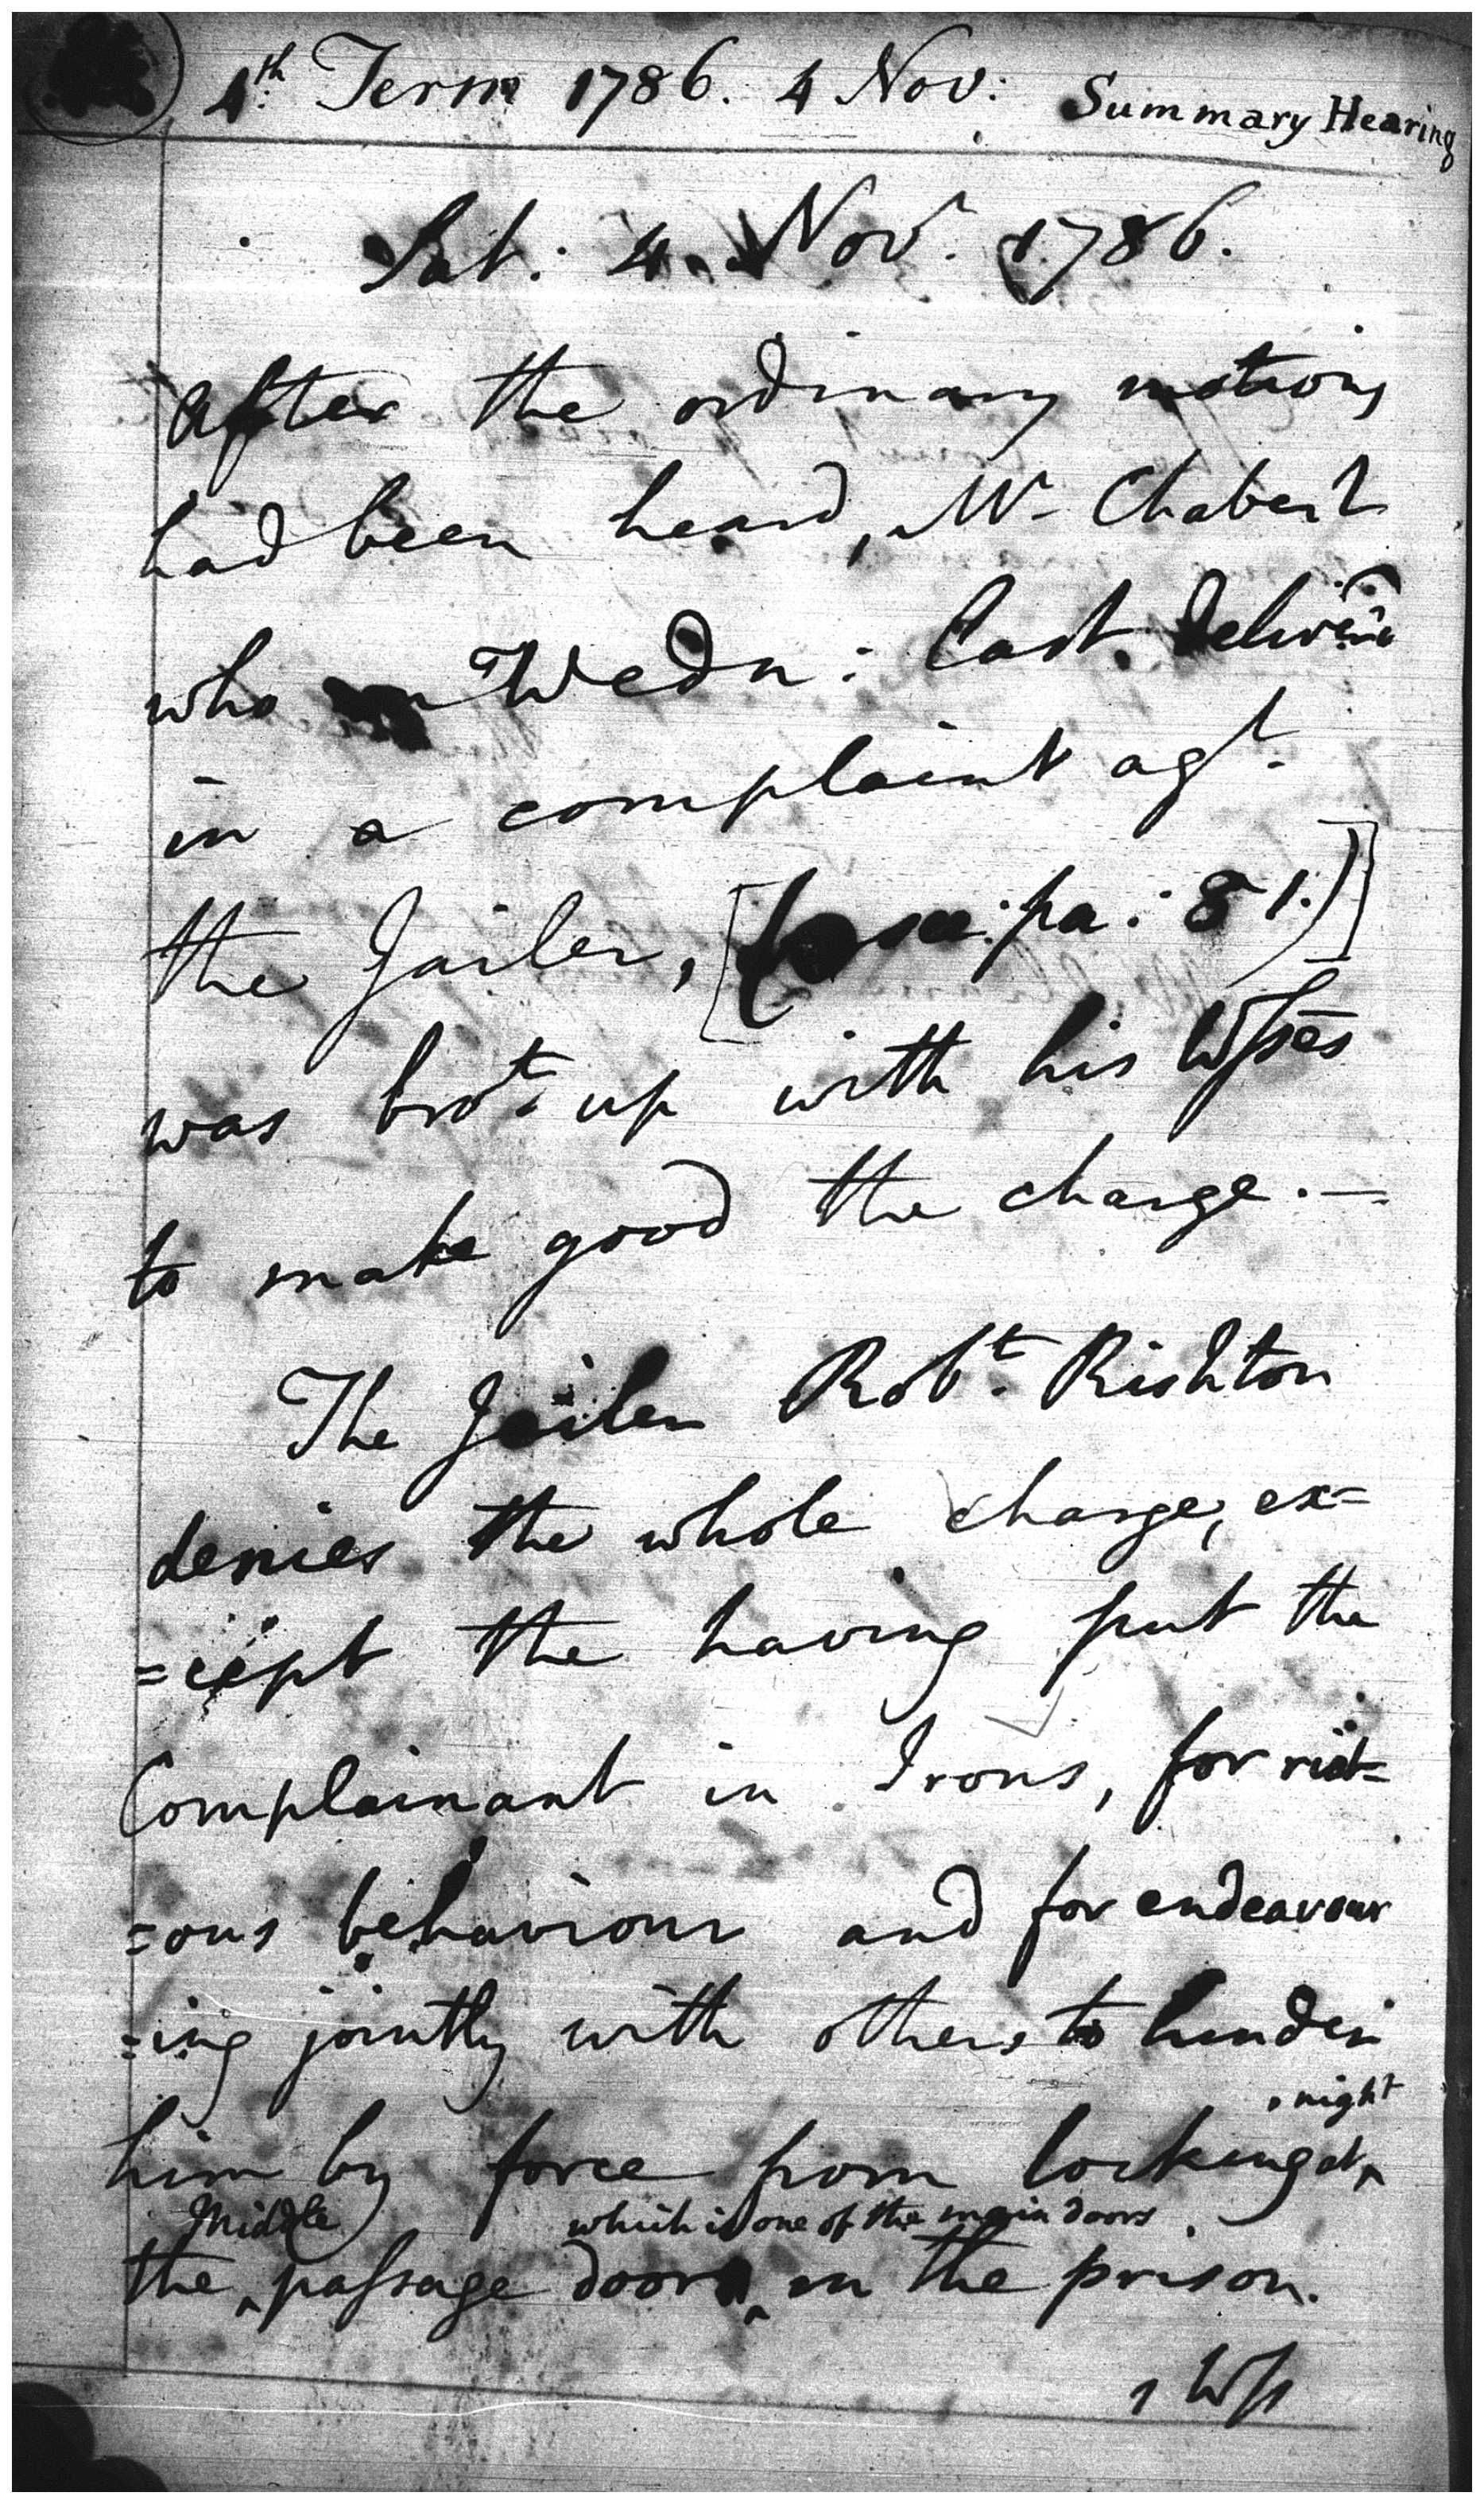 4th. Term 1786. 4 Nov: Summary Hearing
Sat: 4. Novr. 1786.
After the ordinary motions
had been heard, Mr Chabert
who on Wedn: last deliver'd
in a complaint agt.
the Jailer, [(see pa: 81.)]
was brot. up with his Wsses
to make good the charge. —
The Jailer Robt. Rishton
denies the whole charge, ex=
=cept the having put the
Complainant in Irons, for riot=
=ous behaviour and for endeavour
=ing jointly with others to hinder
night
him by force from locking at ^
Middle which is one of the main doors
the ^ passage door ^ in the prison.
1 Wss